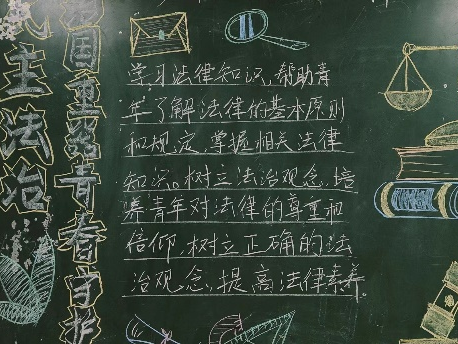 民主法治
国重器青春守护
学习法律知识,帮助青
年了解法律的基本原则
和规定,掌握相关法律
知识。树立法治观念,培
养青年对法律的尊重和
信仰,树立正确的法
治观念,提高法律素养。